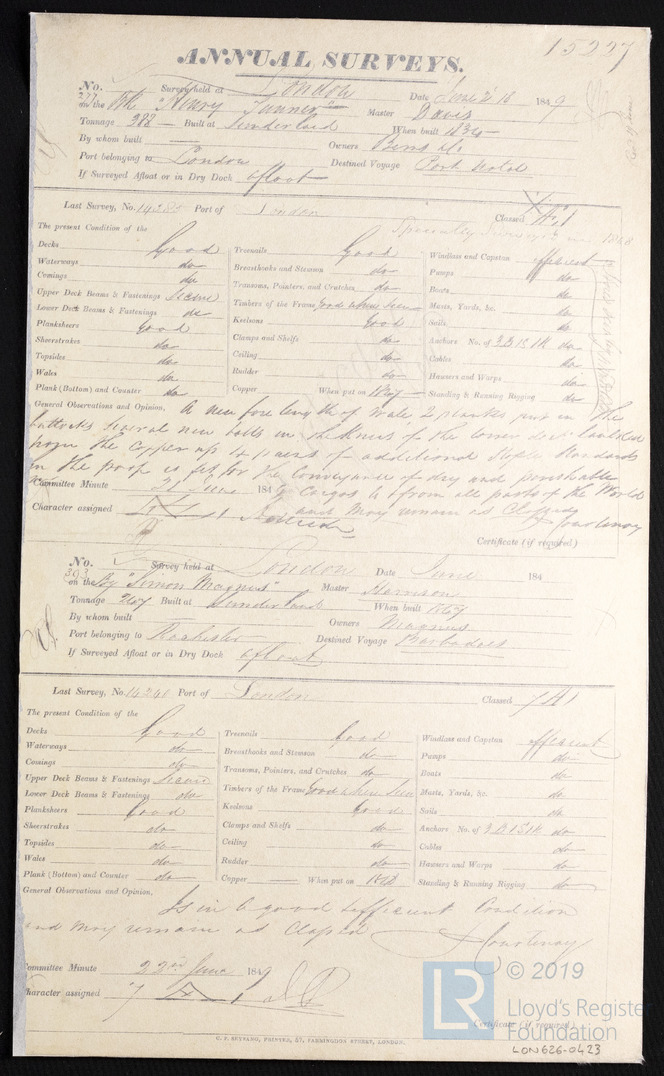 15227
ANNUAL SURVEYS.
No. 277 Survey held at London Date June 2 16 1849
on the Bk "Henry Tanner" Master Davis
Tonnage 388 Built at Sunderland When built 1834
By whom built Owners
Port belonging to London Destined Voyage Port Natal
If Surveyed Afloat or in Dry Dock afloat
Last Survey, No. Port of London Classed A1
The present Condition of the
Decks Good Treenails Good Windlass and Capstan efficient
Waterways do Breasthooks and Stemson do Pumps do
Comings do Transoms, Pointers, and Crutches do Boats do
Upper Deck Beams & Fastenings Secure Timbers of the Frame Good when seen Masts, Yards, &c. do
Lower Deck Beams & Fastenings do Keelsons Good Sails do
Planksheers Good Clamps and Shelfs do Anchors No. of 3 B 1 S 1 K do
Sheerstrakes do Ceiling do Cables do
Topsides do Rudder do Hawsers and Warps do
Wales do Copper When put on 1847 Standing & Running Rigging do
Plank (Bottom) and Counter do
General Observations and Opinion, A new fore length of Wale 2 planks put in the
buttocks several new bolts in the knees of the lower deck caulked
from the copper up 4 pairs of additional Staple Standards
in the poop is fit for the conveyance of dry and perishable
Cargos to & from all parts of the World
Committee Minute 21 June 184
and may remain as Classed
Character assigned Courtenay
Certificate (if required)
No. 393 Survey held at London Date June 184
on the Bg "Simon Magnus" Master Harrison
Tonnage 207 Built at Sunderland When built
By whom built Owners Magnus
Port belonging to Rochester Destined Voyage Barbadoes
If Surveyed Afloat or in Dry Dock afloat
Last Survey, No. Port of London Classed 7 A1
The present Condition of the
Decks Good Treenails Good Windlass and Capstan efficient
Waterways do Breasthooks and Stemson do Pumps do
Comings do Transoms, Pointers, and Crutches do Boats do
Upper Deck Beams & Fastenings Secure Timbers of the Frame Good when seen Masts, Yards, &c. do
Lower Deck Beams & Fastenings do Keelsons Good Sails do
Planksheers Good Clamps and Shelfs do Anchors No. of 3 B 1 S 1 K do
Sheerstrakes do Ceiling do Cables do
Topsides do Rudder do Hawsers and Warps do
Wales do Copper When put on Standing & Running Rigging do
Plank (Bottom) and Counter do
General Observations and Opinion, Is in a good & efficient Condition
and may remain as Classed Courtenay
Committee Minute 22nd June 1849
Character assigned 7 A 1
Certificate (if required)
C. F. SEYFANG, PRINTER, 57, FARRINGDON STREET, LONDON.
LR © 2019
Lloyd's Register
Foundation
LON626-0423